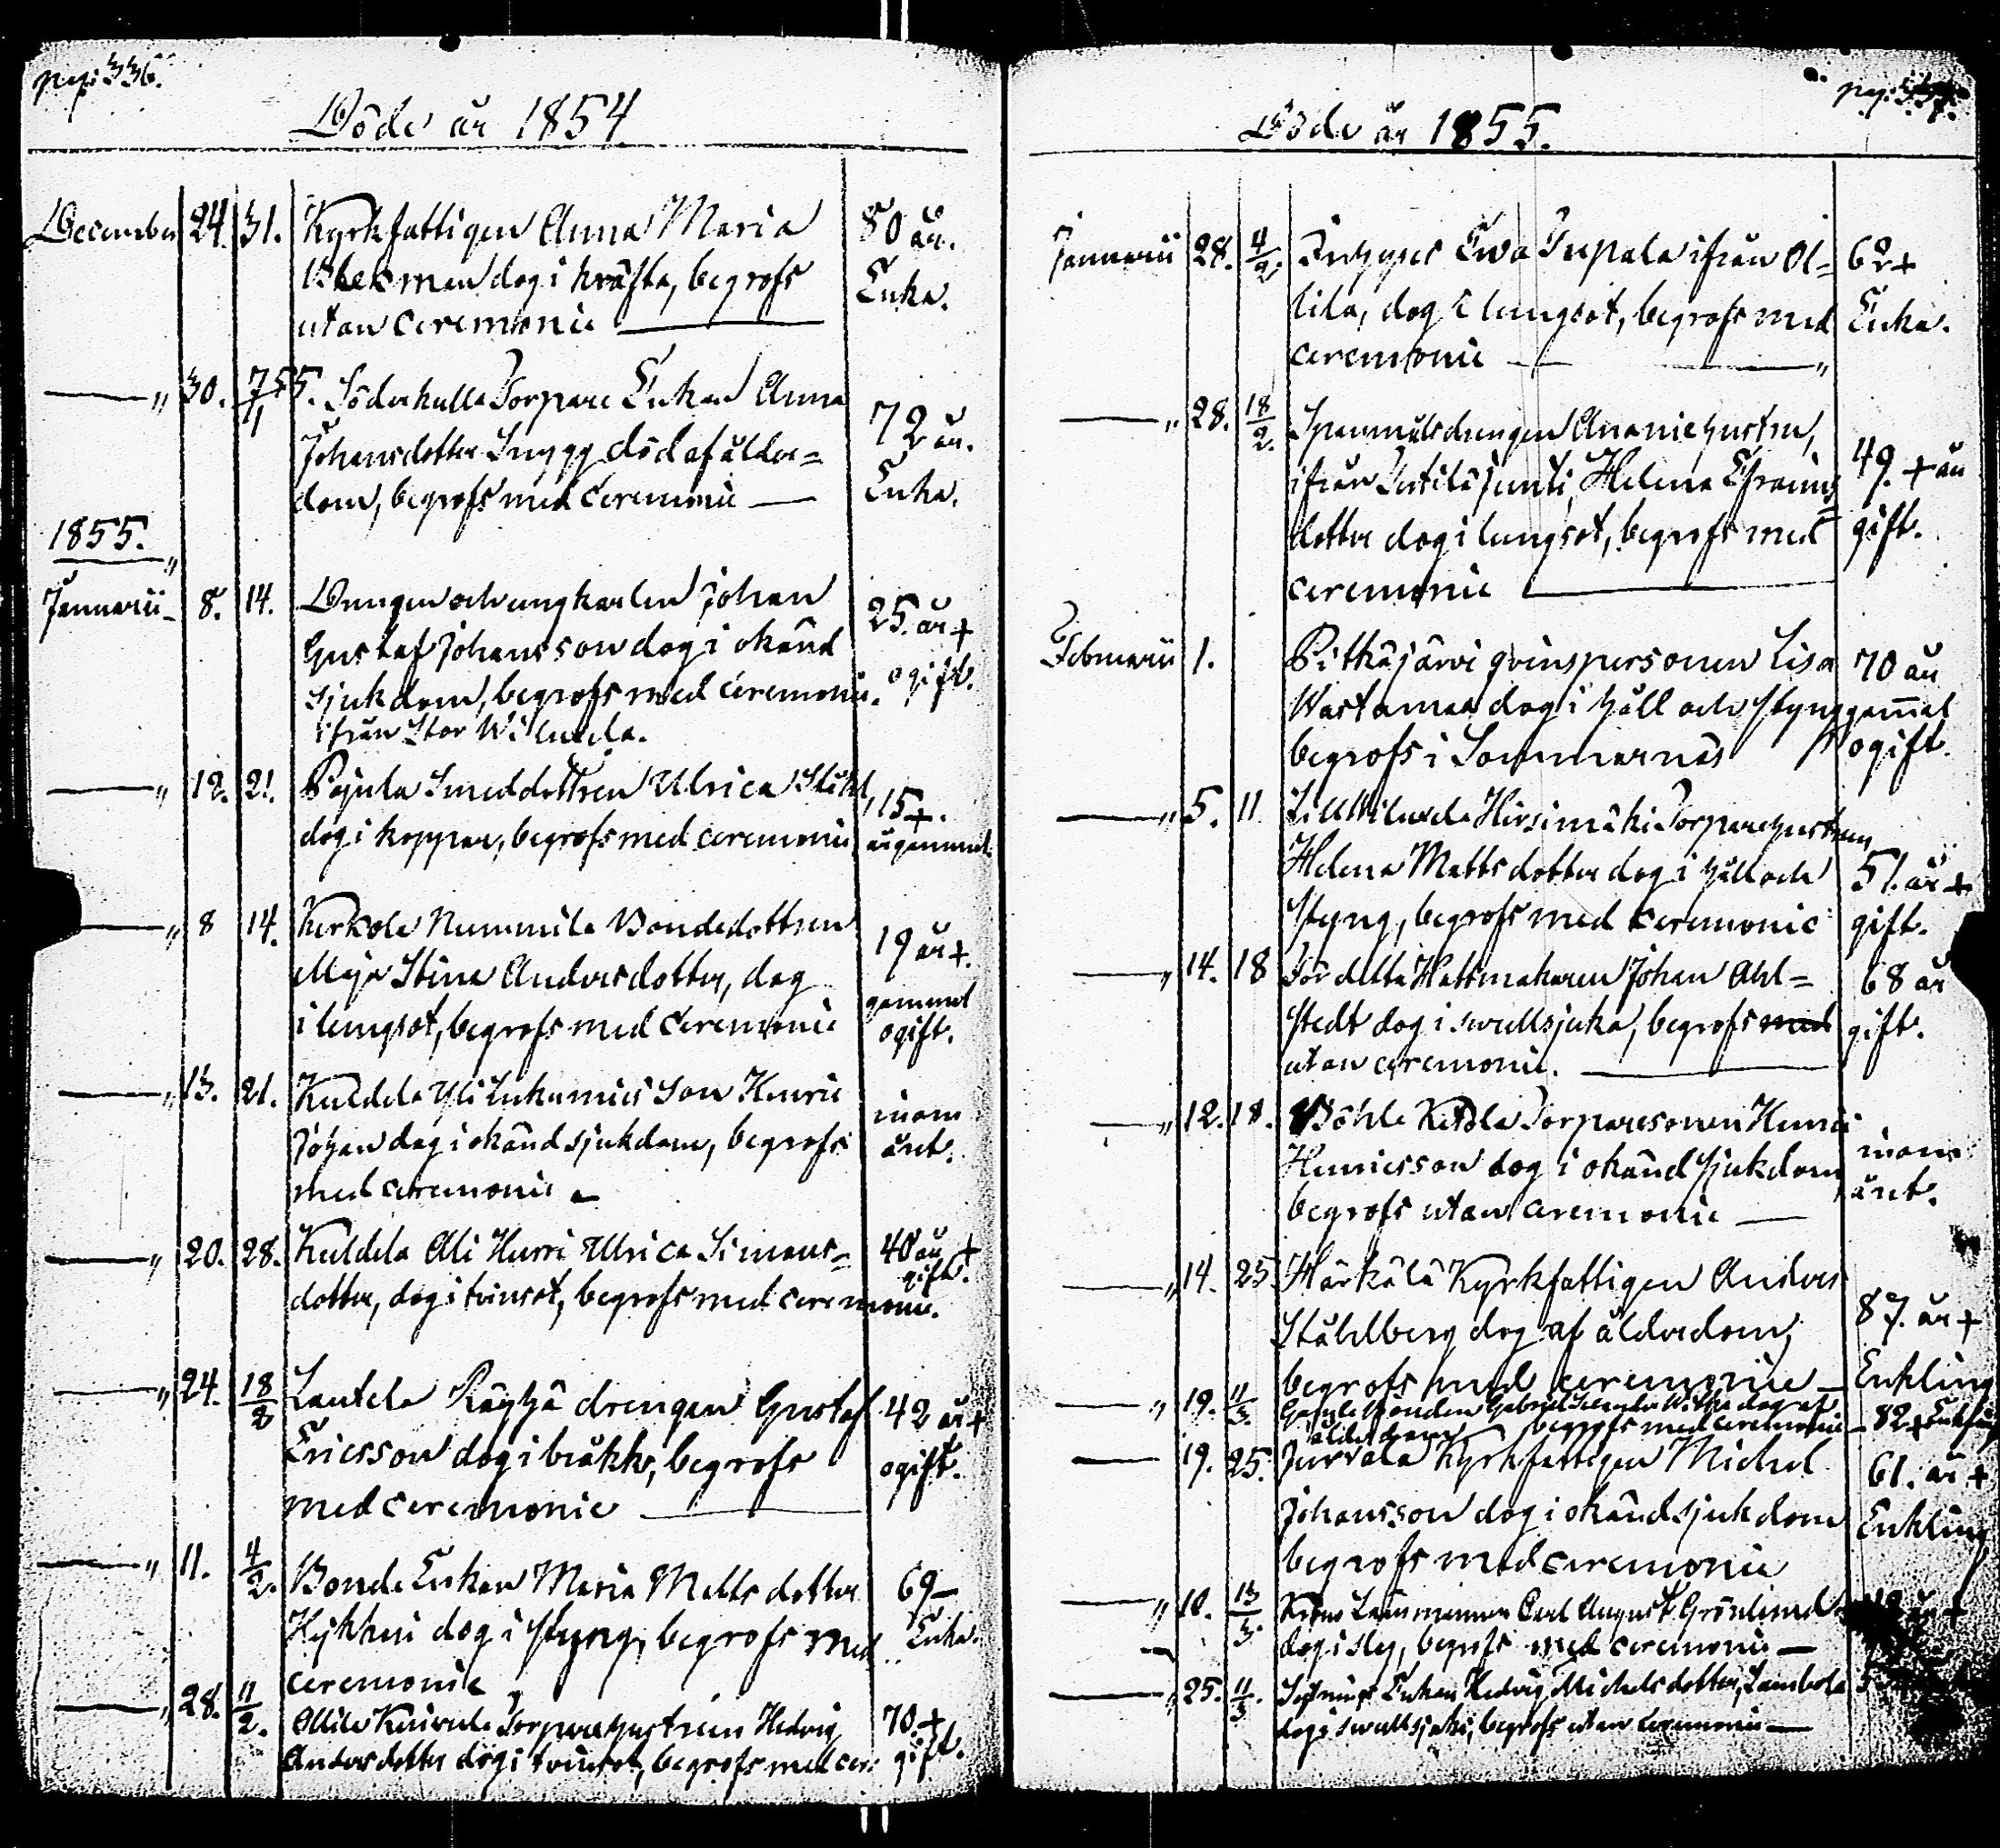 pag. 336.
Döde år 1854
December 24. 31. Kyrkfattigen Anna Maria 80 år.
man dog i kräfta, begrofs Enka.
utan ceremonie
" 30. 7/1 55. Söderkulla Torpare Enkan Anna 72 år.
Johansdotter Snygg död af ålder=
dom, begrofs med ceremonie Enka.
1855.
Januarii 8. 14. Drengen och ungkarlen Johan 25. år +
Gustaf Johansson dog i okänd
sjukdom, begrofs med ceremonie. ogift.
ifrån Stor Wilunda.
" 12. 21. Pajula Smeddottren Ulrica Ståhl, 15 +.
dog i koppor, begrofs med ceremonie år gammal.
" 8 14. Kerkola Nummila Bondedottren 19 år +.
Maja Stina Andersdotter, dog gammal
i lungsot, begrofs med ceremonie ogift.
" 13. 21. Yli son Henric inom
Johan dog i okänd sjukdom, begrofs året.
med ceremonie
" 20. 28. Ali Hurri Ulrica Simons= 40 år +
gift.
dotter, dog i tvinsot, begrofs med ceremonie.
" 24. 18/2 Lautela Räyhä drengen Gustaf 42 år +
Ericsson dog i bråkk, begrofs ogift.
med ceremonie
" 11. 4/2. Bonde Enkan Maria Matts dotter 69
dog i styng, begrofs med Enka.
ceremonie
" 28. 11/2. Ollila Torparehustrun Hedvig 70 +
Andersdotter dog i tvinsot, begrofs med cer. gift.
Döde år 1855.
Januarii 28. 4/2. Ewa ifrån Ol= 62 +
lila, dog i lungsot, begrofs med Enka.
ceremonie "
" 28. 18/2. Spanmålsdrengen Ananiæ hustru, 49. + år
ifrån Junti, Helena Efraims
dotter dog i lungsot, begrofs med gift.
ceremonie
Februarii 1. Pitkäjärvi qvinspersonen Lisa 70 år
Wastamaa dog i håll och styng gammal
begrofs i Sommarnäs ogift.
" 5. 11. Lill Wilunda Hirsimäki Torparehustrun
Helena Mattsdotter dog i håll och 51. år +
styng, begrofs med ceremonie gift.
" 14. 18 Hattmakaren Johan Ahl= 68 år
stedt dog i swullsjuka, begrofs med gift.
utan ceremonie.
" 12. 18. Böhle Ketola Torparesonen Henric inom
Henricsson dog i okänd sjukdom, året.
begrofs utan ceremonie
" 14. 25 Härkälä Kyrkfattigen Anders 87. år +
Ståhlberg dog af ålderdom,
begrofs med ceremonie Enkling
" 19. 11/3. Bonden Gabriel dog af
ålderdom begrofs med ceremonie 82 + Enkling
19. 25. Jurvala Kyrkfattigen Michel 61. år +
Johansson dog i okänd sjukdom Enkling
begrofs med ceremonie
" 10. 13/3. Krono Länsmannen Carl August Grönlund år +
dog i slag, begrofs med ceremonie
" 25. 11/3. Enkan Hedvig Michelsdotter,
dog i swullsjuka, begrofs utan ceremonie